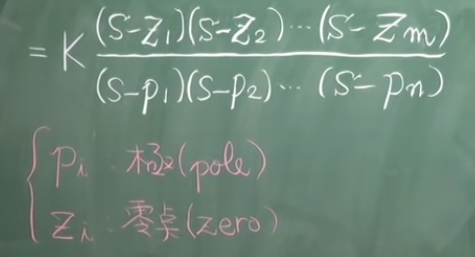 = K (s-z₁)(s-z₂)⋯(s-zm) / (s-p₁)(s-p₂)⋯(s-pn)
pᵢ : 極(pole)
zᵢ : 零点(zero)